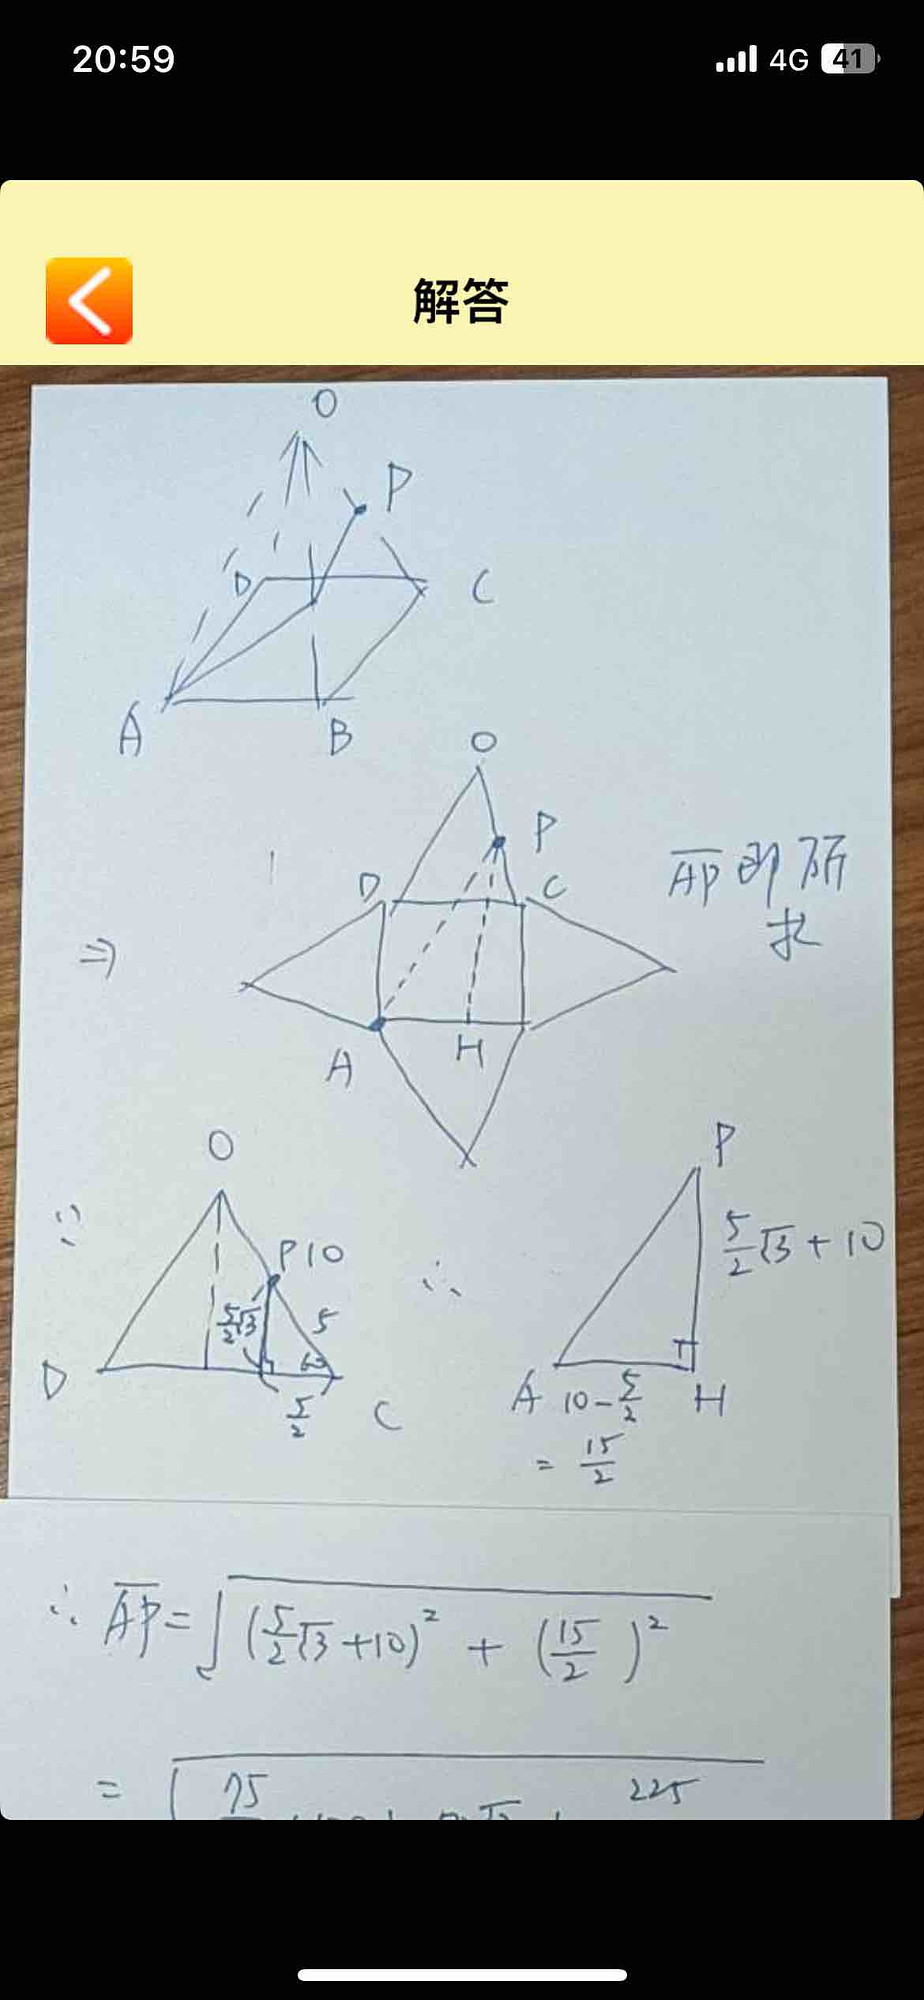 20:59
4G 41
解答
O
P
D C
A B
O
P
D C
AP 即所求
⇒
A H
O P
∵ P 10 5/2√3 + 10
5/2√3 5 ∴
60
D 5/2 C A 10 - 5/2 H
= 15/2
∴ AP = √(5/2√3 + 10)² + (15/2)²
= √ 75 225